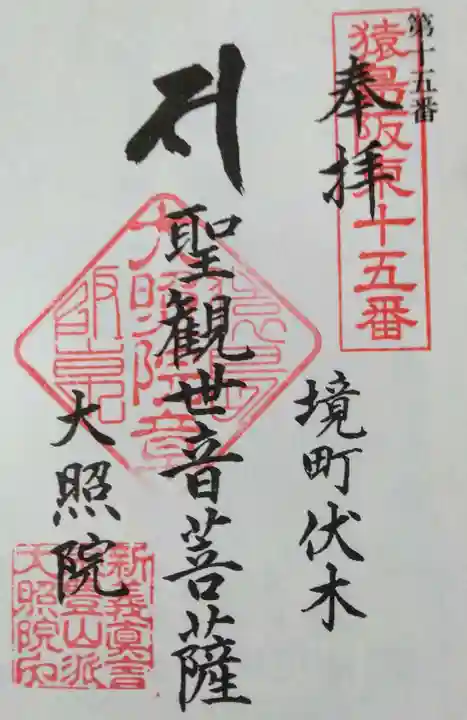 第十五番
猿島阪東十五番
奉拝
境町伏木
聖観世音菩薩
大照院
新義真言
豊山派
大照院内